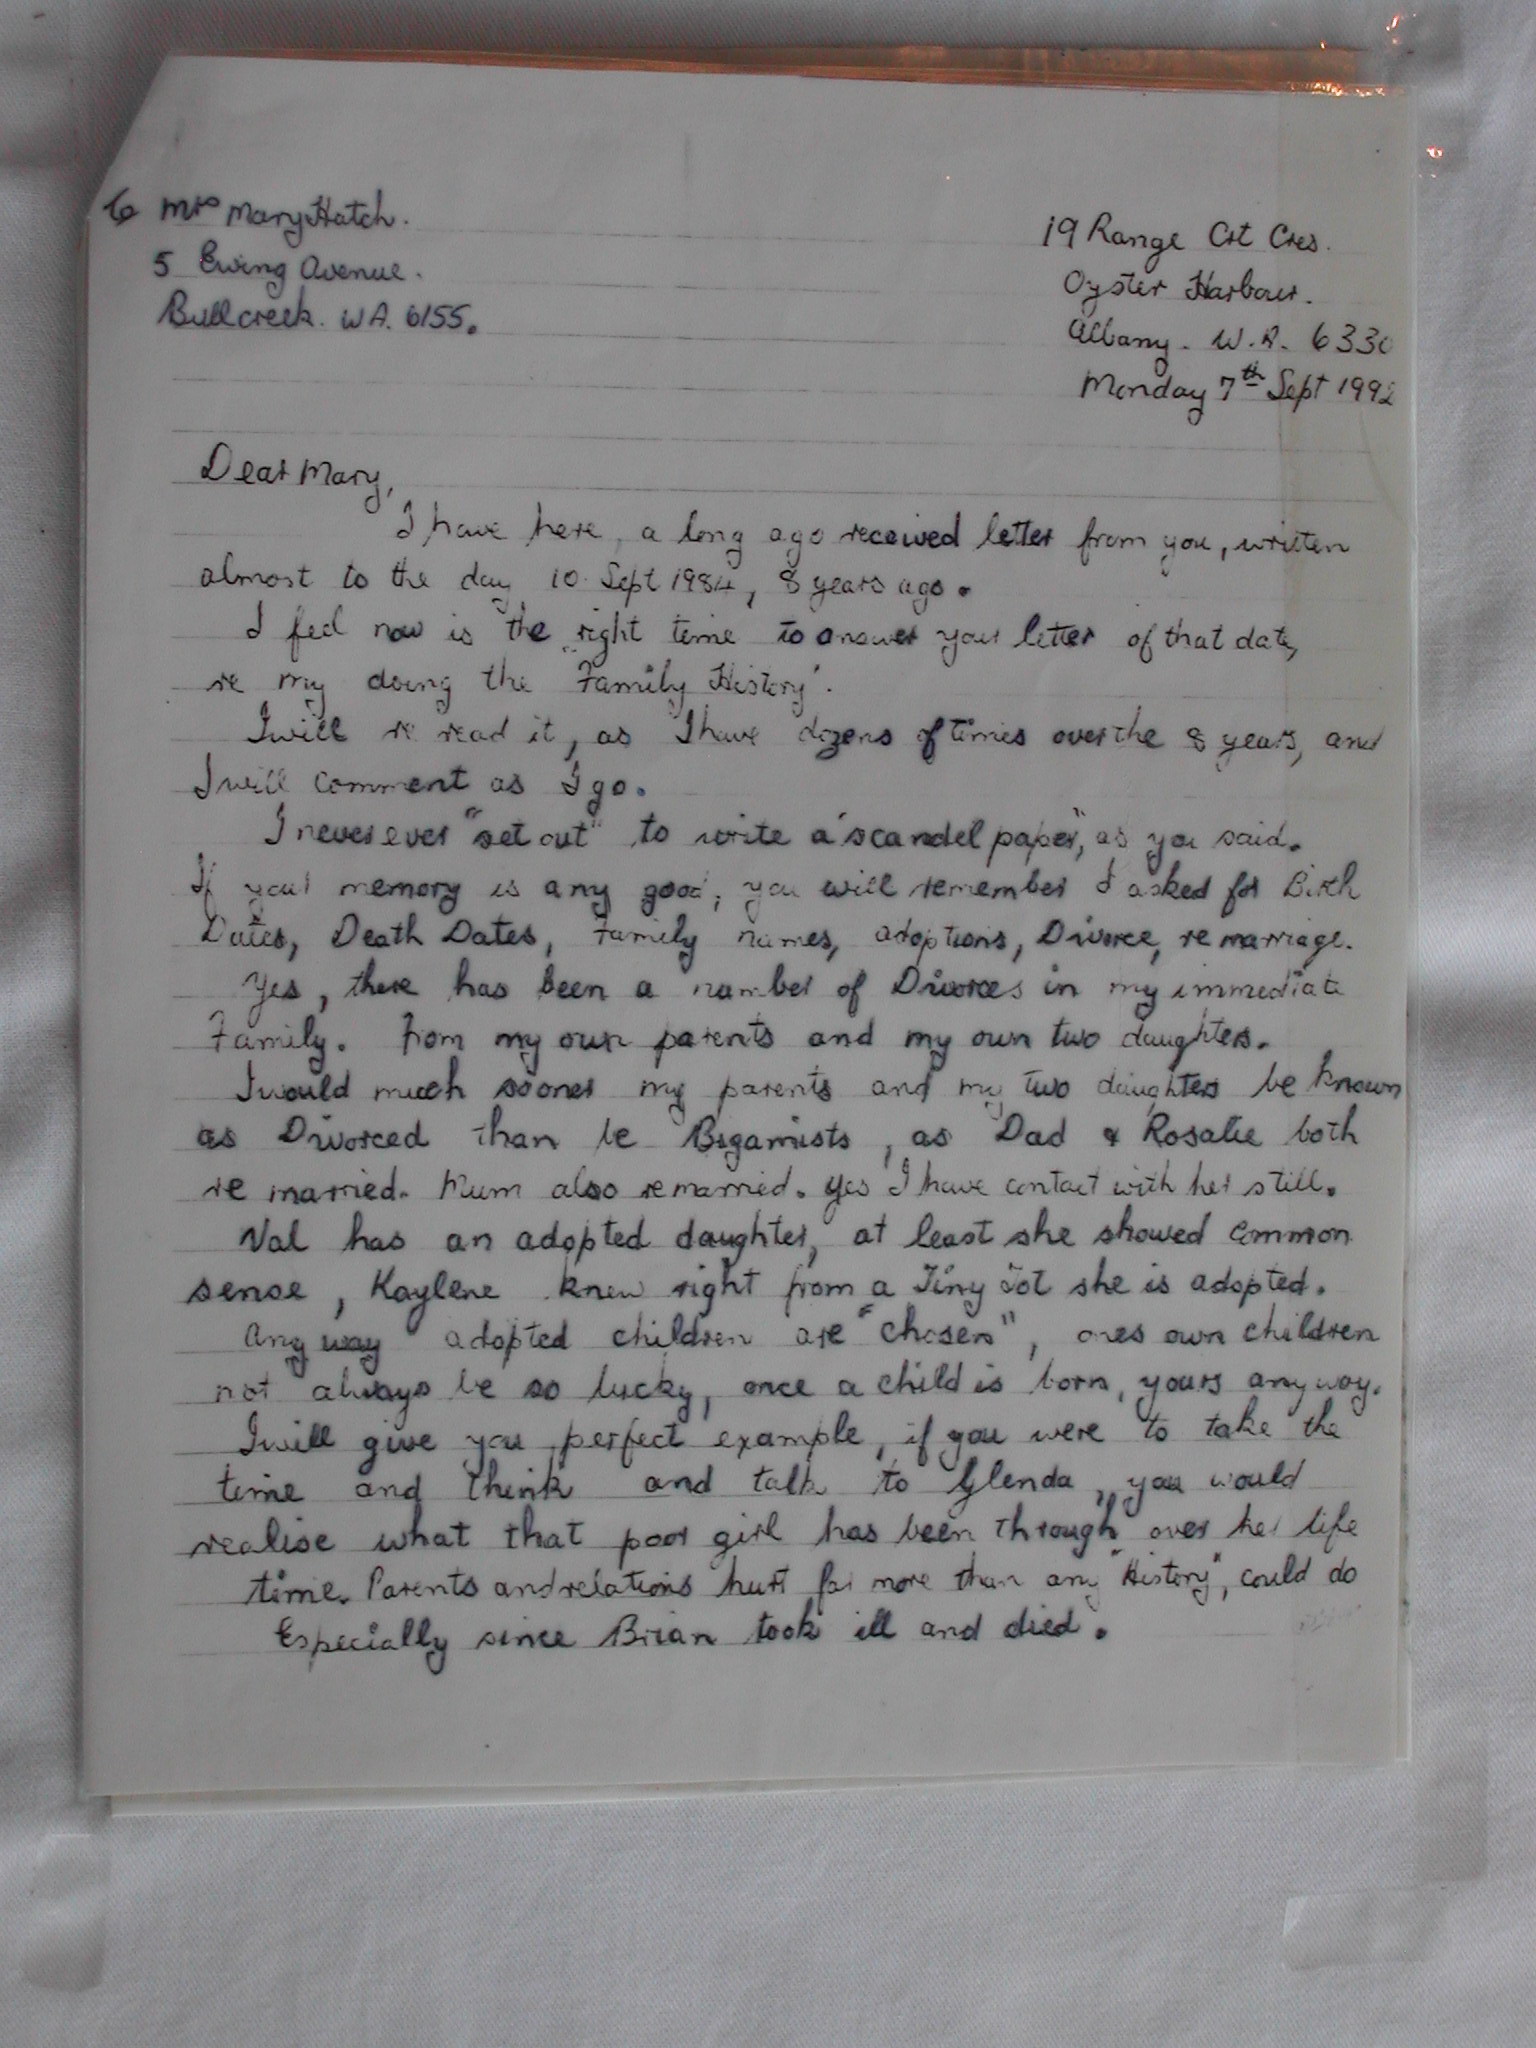 To Mrs Mary Hatch.
5 Ewing Avenue.
Bullcreek. WA. 6155.
19 Range Crt Cres.
Oyster Harbour.
Albany. W.A. 6330
Monday 7th Sept 1992
Dear Mary,
I have here, a long ago received letter from you, written
almost to the day 10 Sept 1984, 8 years ago.
I feel now is the right time to answer your letter of that date,
re my doing the "Family History".
I will re read it, as I have dozens of times over the 8 years, and
I will comment as I go.
I never ever "set out" to write a "scandel paper", as you said.
If your memory is any good, you will remember I asked for Birth
Dates, Death Dates, Family names, adoptions, Divorce, re marriage.
Yes, there has been a number of Divorces in my immediate
Family. From my own parents and my own two daughters.
I would much sooner my parents and my two daughters be known
as Divorced than be Bigamists, as Dad & Rosalie both
re married. Mum also remarried. Yes I have contact with her still.
Val has an adopted daughter, at least she showed common
sense, Kaylene knew right from a Tiny Tot she is adopted.
Any way adopted children are "chosen", ones own children
not always be so lucky, once a child is born, yours anyway.
I will give you perfect example, if you were to take the
time and think and talk to Glenda, you would
realise what that poor girl has been through over her life
time. Parents and relations hurt far more than any "History", could do
Especially since Brian took ill and died.